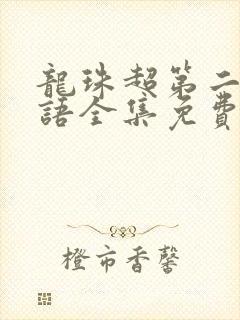 龍珠超第二
語全集免費
橙市香馨